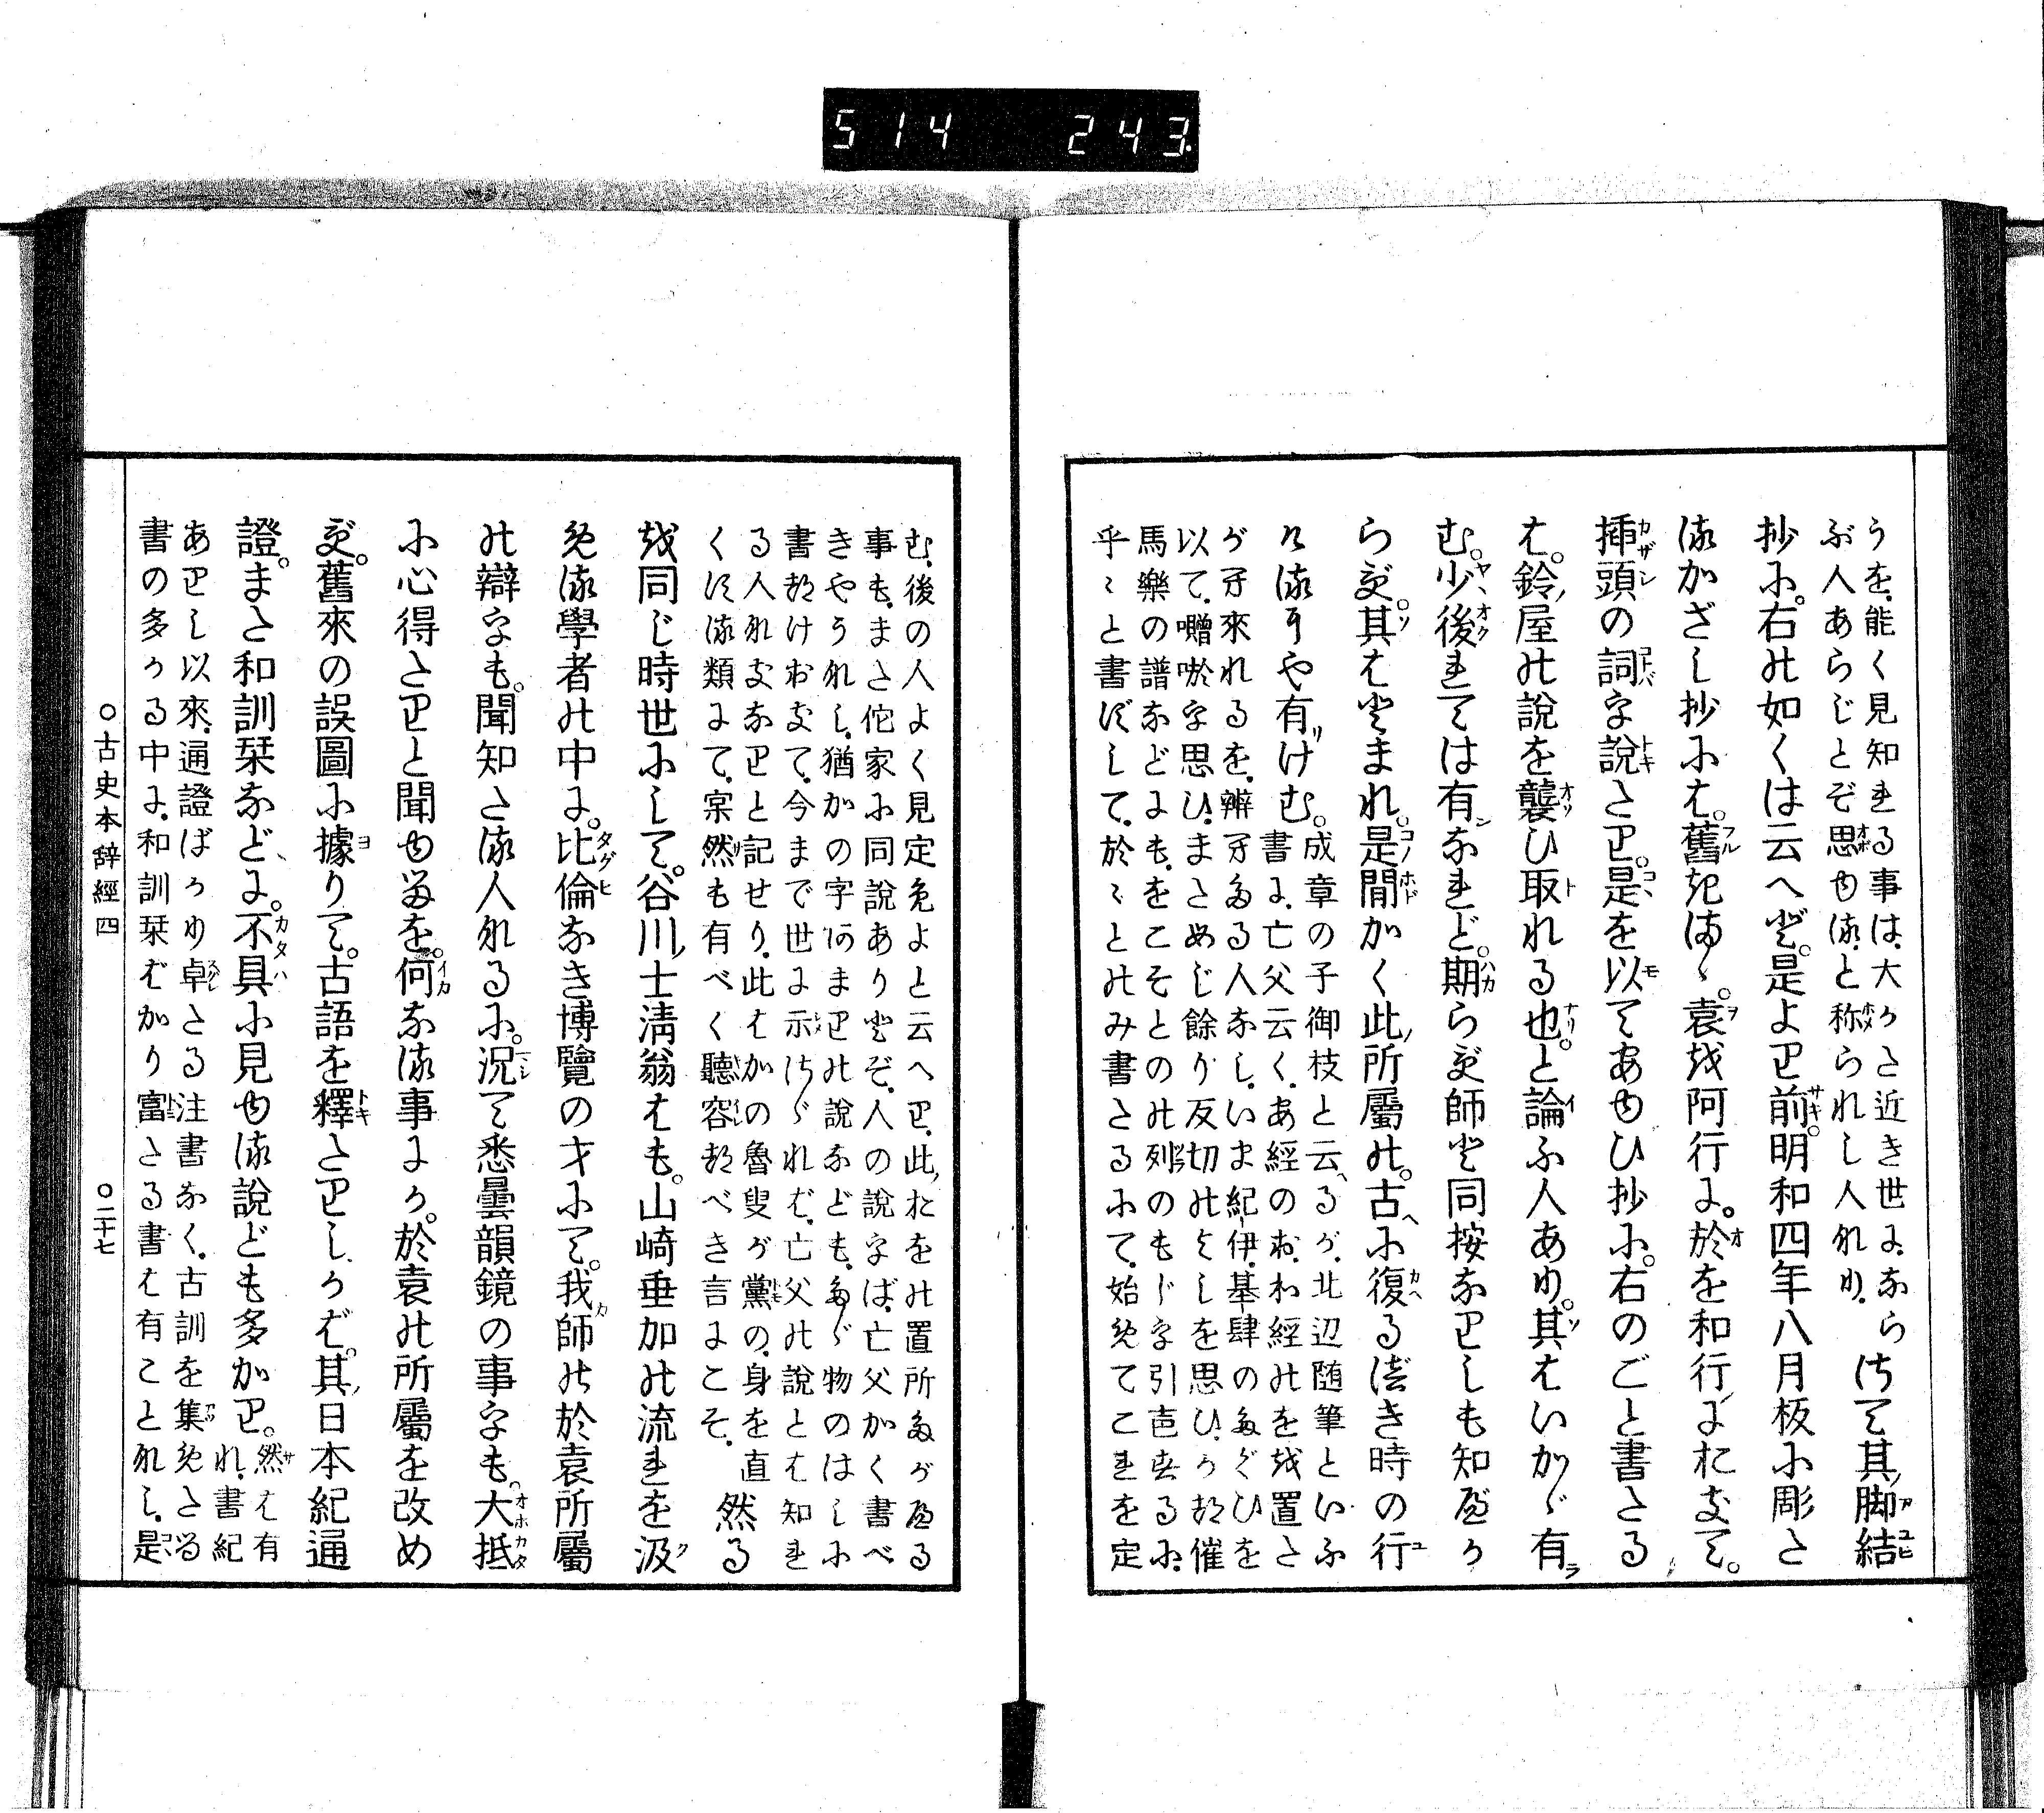 514 243
うを、能く見知れる事は、大かた近き世に、なら
ぶ人あらじとぞ思ゆる、と称られし人なり、
さて其脚結
抄に。右の如くは云へど。是より前。明和四年八月板に彫た
るかざし抄には。舊きまゝ。袁を阿行に。於を和行におきて。
挿頭の詞を説たり。是を以てあゆひ抄に。右のごと書たる
は。鈴屋の説を襲ひ取れる也。と論ふ人あり。其はいかゞ有
む。少後れては有なれど。期らず師と同按なりしも知べか
らず。其はとまれ。是間かく此所屬の。古に復るべき時の行
けるにや有けむ。
成章の子御枝と云へるが、北辺随筆といふ
書に、亡父云く、あ經のお、わ經のをを置た
が牙來れるを、辨牙たる人なし、いま紀伊、基肆のたぐひを
以て、囎唹を思ひ、まためじ餘り反切のよしを思ひ、か那催
馬樂の譜などにも、をこそとのの列のもじを引音するに、
乎々と書ずして、於々とのみ書たるにて、始めてこれを定
む、後の人よく見定めよと云へり、此おをの置所たがへる
事も、また佗家に同説ありとぞ、人の説をば、亡父かく書べ
きやうなし、猶かの字あまりの説なども、たゞ物のはしに
書なけおきて、今まで世に示さゞれば、亡父の説とは知れ
る人なきなりと記せり、此はかの魯叟が黨の、身を直
くする類にて、寀然も有べく聽容なべき言にこそ、
然る
を同じ時世にして。谷川士淸翁はも。山崎垂加の流れを汲
める學者の中に。比倫なき博覽の才にて。我師の於袁所屬
の辯をも。聞知たる人なるに。況て悉曇韻鏡の事をも。大抵
に心得たりと聞ゆるを。何なる事にか。於袁の所屬を改め
ず。舊來の誤圖に據りて。古語を釋たりしかば。其日本紀通
證。また和訓栞などに。不具に見ゆる説ども多かり。
然は有
れ、書紀
ありし以來、通證ばかり卓たる注書なく、古訓を集めたる
書の多かる中に、和訓栞ばかり富たる書は有ことなし、是
○古史本辞經四 ○二十七